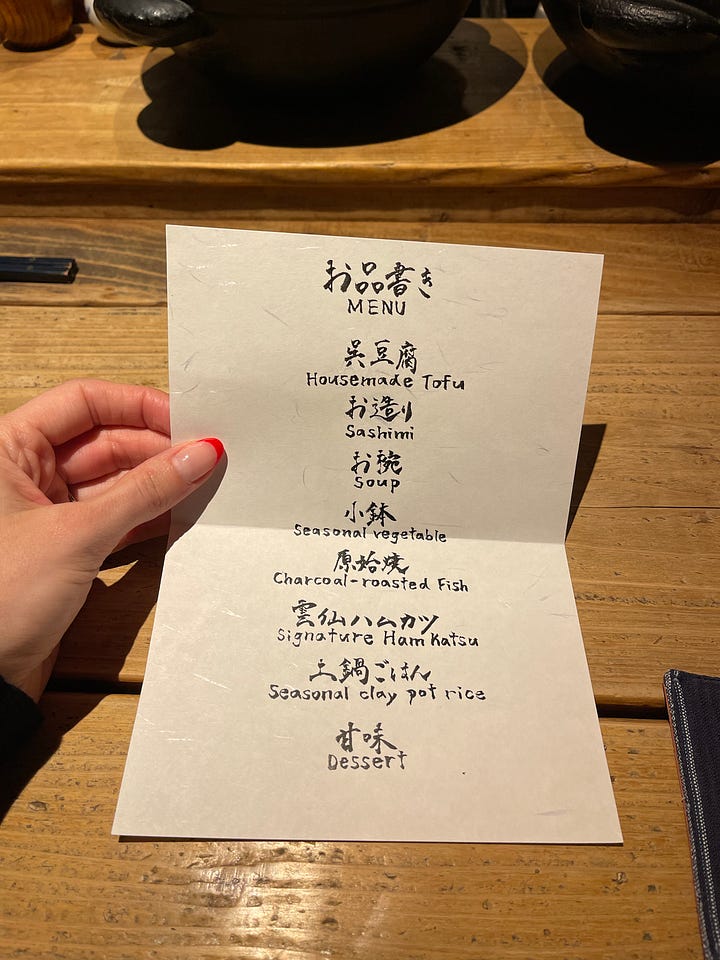 お品書き
MENU
呉豆腐
Housemade Tofu
お造り
Sashimi
お椀
Soup
小鉢
Seasonal vegetable
原始焼
Charcoal-roasted Fish
雲仙ハムカツ
Signature Ham Katsu
土鍋ごはん
Seasonal clay pot rice
甘味
Dessert